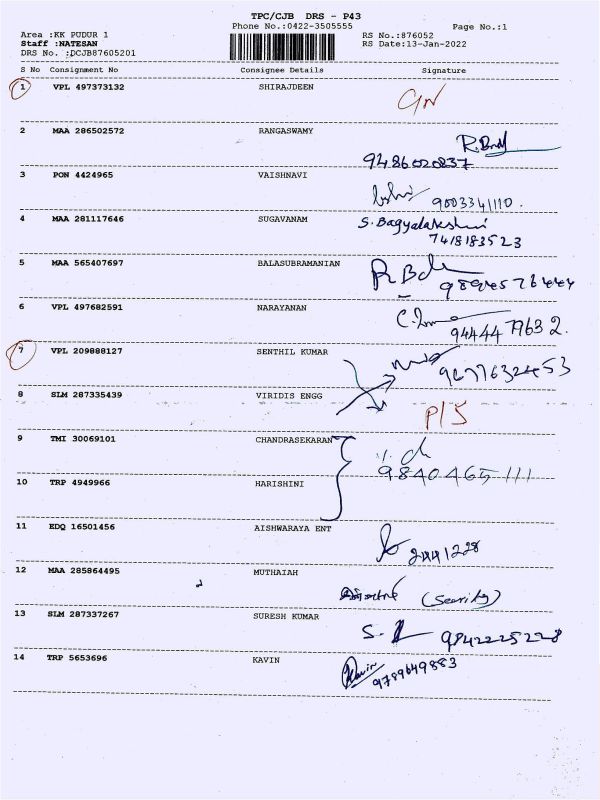 TPC/CJB DRS - P43
Phone No.:0422-3505555
Page No.:1
Area :KK PUDUR 1
RS No.:876052
Staff :NATESAN
RS Date:13-Jan-2022
DRS No. :DCJB87605201
S No Consignment No Consignee Details Signature
1 VPL 497373132 SHIRAJDEEN
2 MAA 286502572 RANGASWAMY
9486020837
3 PON 4424965 VAISHNAVI
9003341110.
4 MAA 281117646 SUGAVANAM S. Bagyalakshmi
7418183523
5 MAA 565407697 BALASUBRAMANIAN
6 VPL 497682591 NARAYANAN
9444479632.
7 VPL 209888127 SENTHIL KUMAR
9677632453
8 SLM 287335439 VIRIDIS ENGG
P/S
9 TMI 30069101 CHANDRASEKARAN
9840465111
10 TRP 4949966 HARISHINI
11 EDQ 16501456 AISHWARAYA ENT
2441228
12 MAA 285864495 MUTHAIAH
(Security)
13 SLM 287337267 SURESH KUMAR
9842225228
14 TRP 5653696 KAVIN
Kavin 9789649883